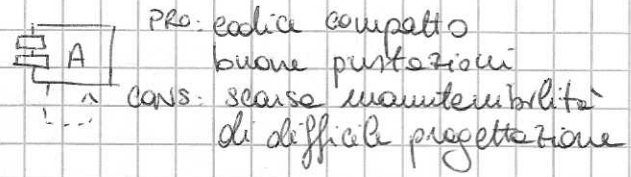 A
PRO: codice compatto
buone prestazioni
CONS: scarsa manutenibilità
di difficile progettazione